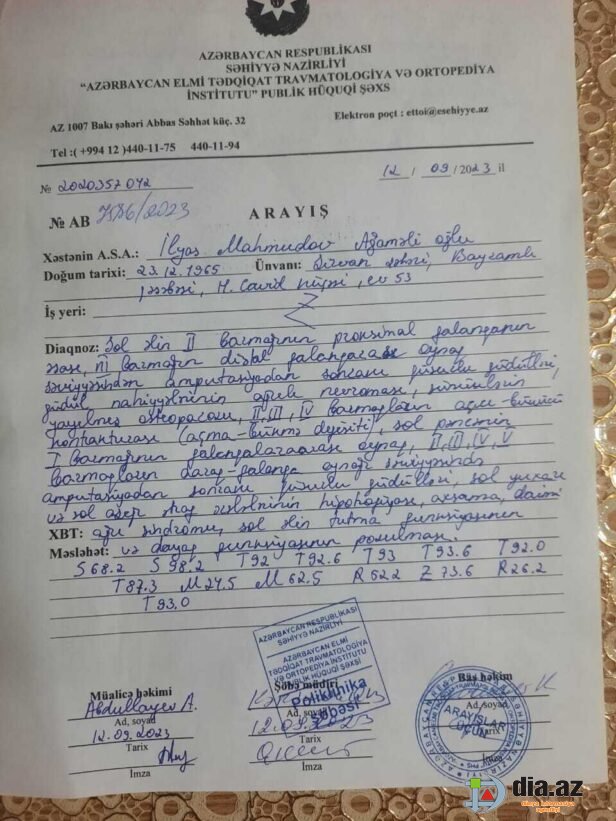 AZƏRBAYCAN RESPUBLİKASI
SƏHİYYƏ NAZİRLİYİ
“AZƏRBAYCAN ELMİ TƏDQİQAT TRAVMATOLOGİYA VƏ ORTOPEDİYA
İNSTİTUTU” PUBLİK HÜQUQİ ŞƏXS
AZ 1007 Bakı şəhəri Abbas Səhhət küç. 32
Elektron poçt : ettoi@esehiyye.az
Tel :( +994 12 )440-11-75 440-11-94
12 / 09 /2023 il
№ 2020357042
№ AB 7586/2023
ARAYIŞ
Xəstənin A.S.A.: İlyas Mahmudov Ağaməli oğlu
Doğum tarixi: 23.12.1965 Ünvanı: Şirvan şəhəri, Bayramlı
qəsəbəsi, H. Cavid küçəsi, ev 53
İş yeri:
Diaqnoz: Sol əlin II barmağının proksimal falanqanın
əsası, III barmağın distal falanqaarası oynaq
səviyyəsindən amputasiyadan sonrakı qüsurlu güdülləri,
güdül nahiyyələrinin ağrılı nevroması, sümüklərin
yayılmış osteoporozu, II, III, IV barmaqların açıcı-bükücü
kontrakturası (açma-bükmə defisiti), sol pəncənin
I barmağının falanqalararası oynaq, II, III, IV, V
barmaqların daraq-falanqa oynağı səviyyəsində
amputasiyadan sonrakı qüsurlu güdülləri, sol yuxarı
və sol aşağı ətraf əzələlərinin hipotrofiyası, axsama, daimi
XBT: ağrı sindromu, sol əlin tutma funksiyasının
Məsləhət: və dayaq funksiyasının pozulması.
S 68.2 S 98.2 T 92 T 92.6 T 93 T 93.6 T 92.0
T 87.3 M 24.5 M 62.5 R 52.2 Z 73.6 R 26.2
T 93.0
AZƏRBAYCAN RESPUBLİKASI
SƏHİYYƏ NAZİRLİYİ
AZƏRBAYCAN ELMİ
TƏDQİQAT TRAVMATOLOGİYA
VƏ ORTOPEDİYA İNSTİTUTU
PUBLİK HÜQUQİ ŞƏXSİ
Poliklinika
şöbəsi
Müalicə həkimi
Şöbə müdiri
Baş həkim
Abdullayev A.
Ad, soyad
Ad, soyad
12.09.2023
12.09.2023
Tarix
Tarix
Tarix
İmza
İmza
İmza
ARAYIŞLAR
ÜÇÜN
dia.az
Dünya informasiya
agentliyi